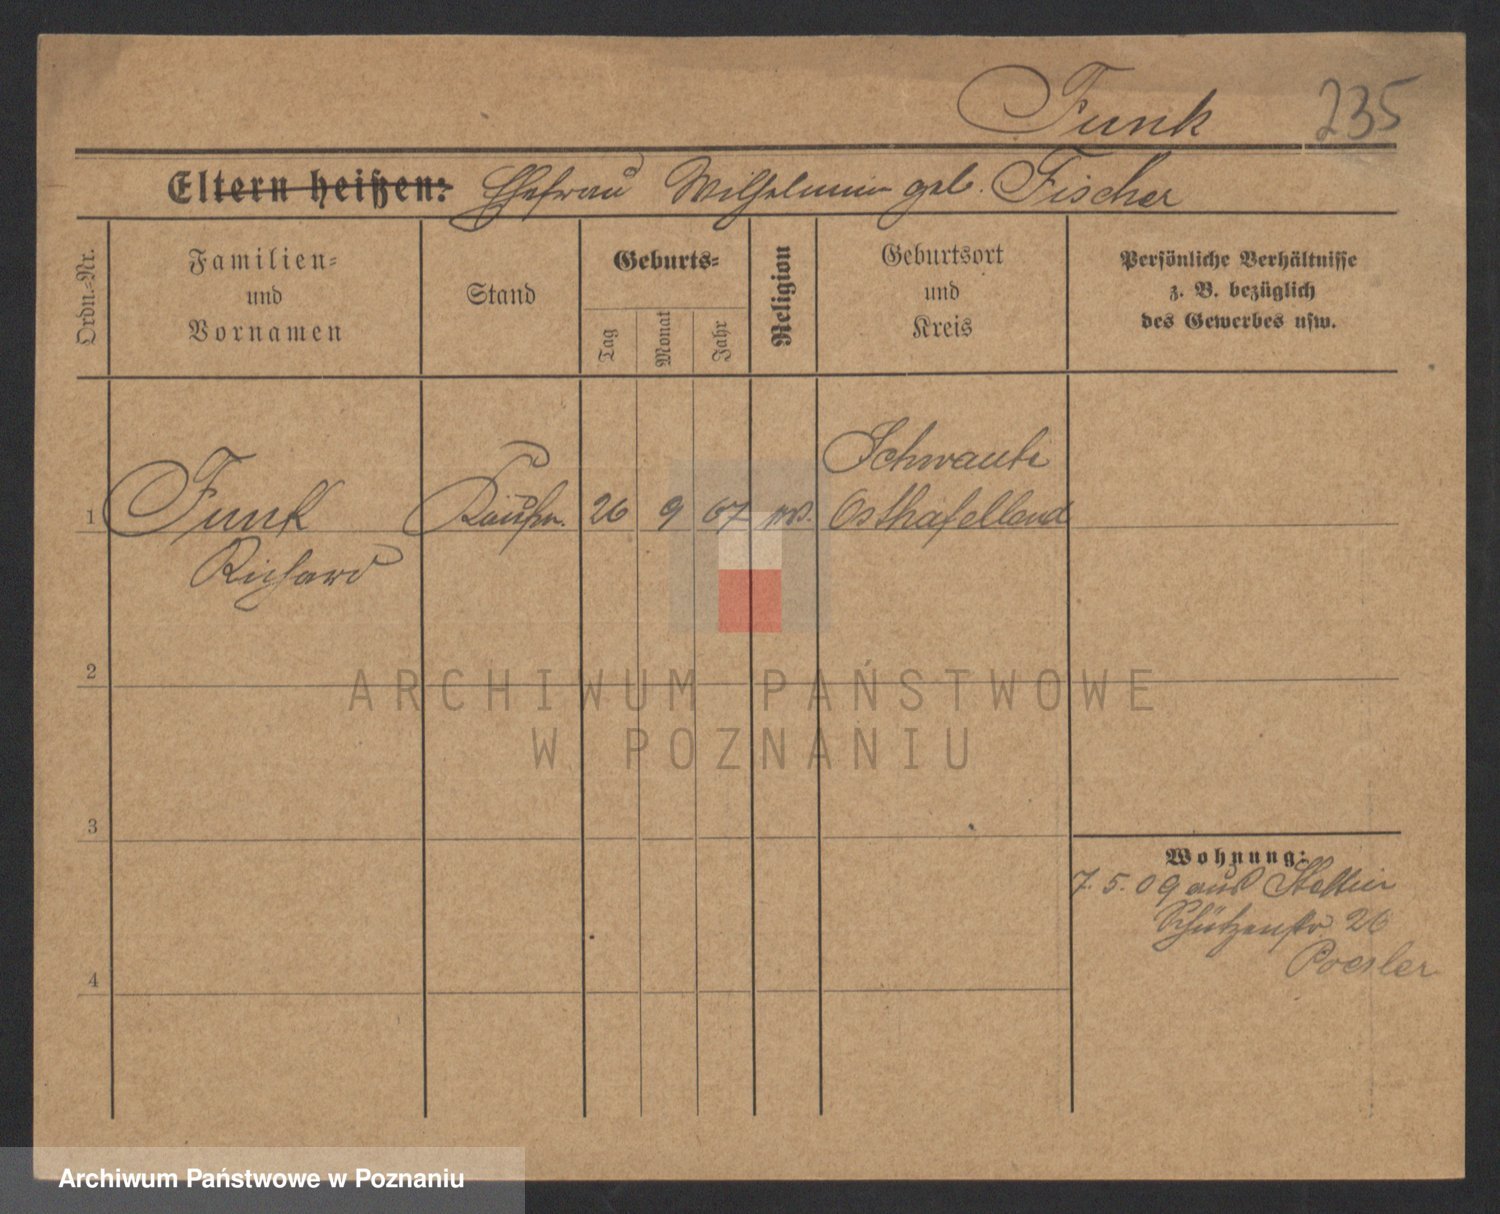 Funk 235
Eltern heißen: Ehefrau Wilhelmine geb. Fischer
Ordn.-Nr.
Familien-
und
Vornamen
Stand
Geburts-
Tag
Monat
Jahr
Religion
Geburtsort
und
Kreis
Persönliche Verhältnisse
z. B. bezüglich
des Gewerbes usw.
Schwante
1 Funk Kaufm. 26 9 67 Osthafelland
Richard
2
ARCHIWUM PAŃSTWOWE
W POZNANIU
3
Wohnung:
7. 5. 09 aus Stettin
Schützenstr 26
4
Archiwum Państwowe w Poznaniu